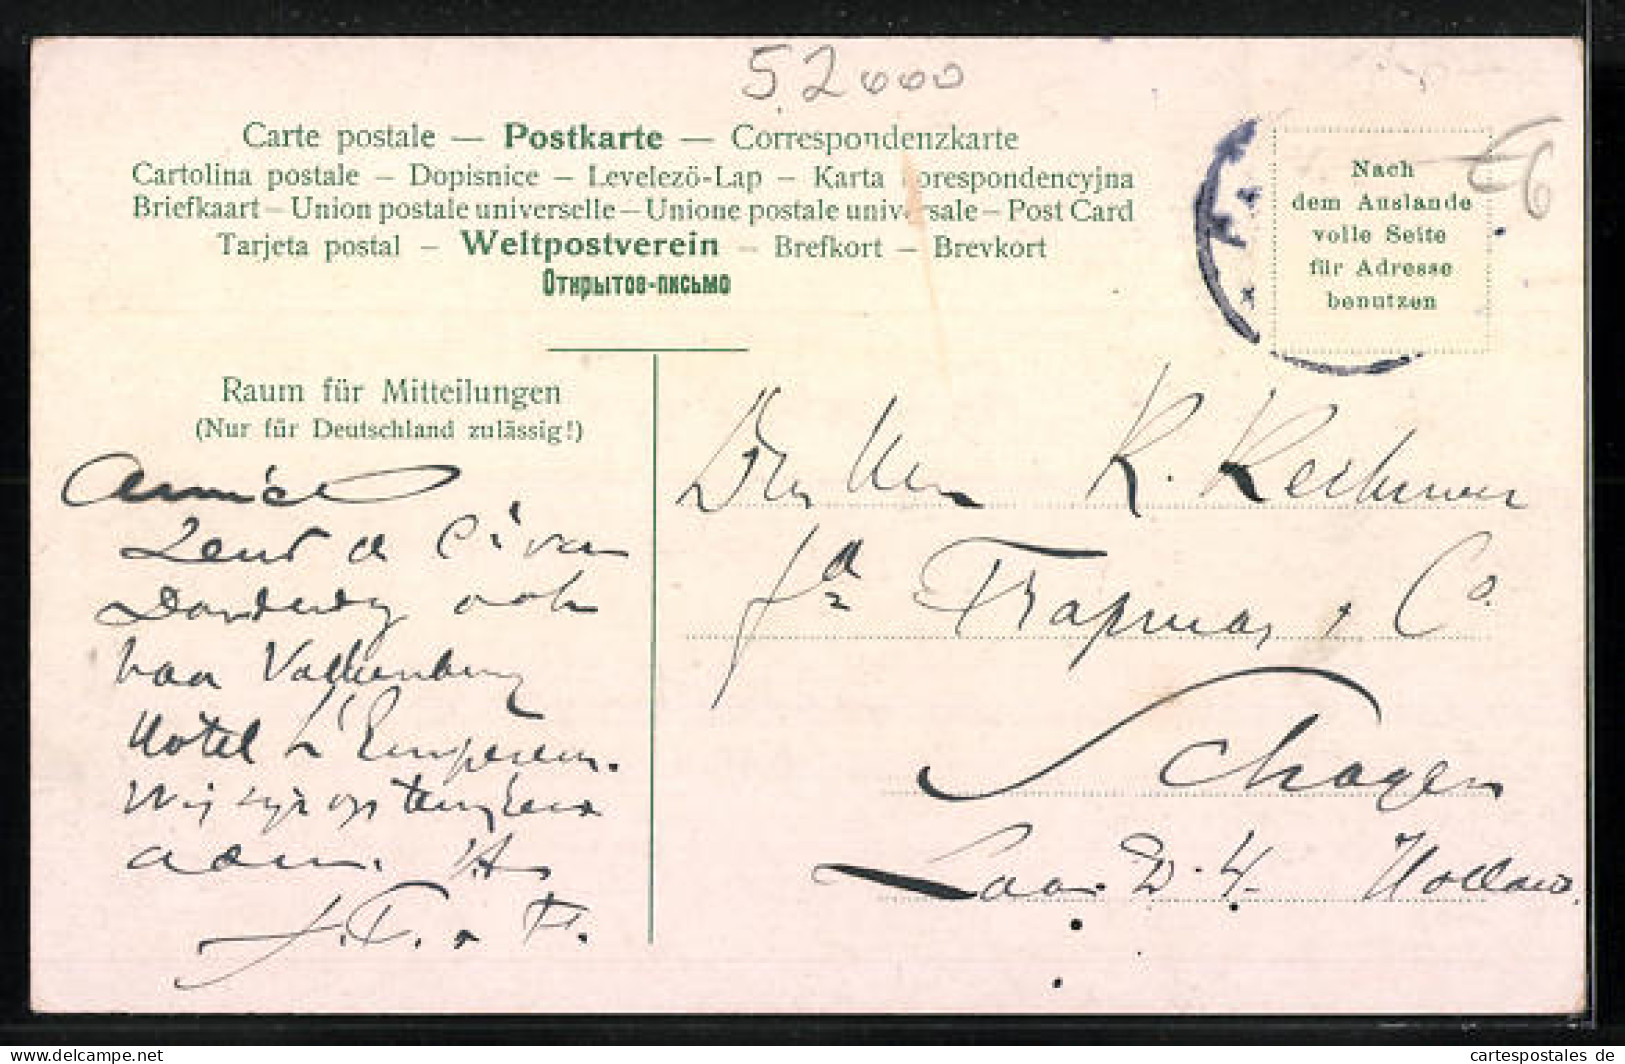 52000
Carte postale — Postkarte — Correspondenzkarte
Cartolina postale – Dopisnice – Levelezö-Lap – Karta korespondencyjna
Briefkaart – Union postale universelle – Unione postale universale – Post Card
Tarjeta postal – Weltpostverein – Brefkort – Brevkort
Открытое-письмо
Nach
dem Auslande
volle Seite
für Adresse
benutzen
€6
Raum für Mitteilungen
(Nur für Deutschland zulässig!)
Amice
Zend de C. i van
Donderdag ook
naar Valkenburg
Hotel L'Empereur.
Wij zijn op
J.C. F.
Den Heer K.
fa Trapman & Co.
Schagen
Holland
delcampe.net
cartespostales de